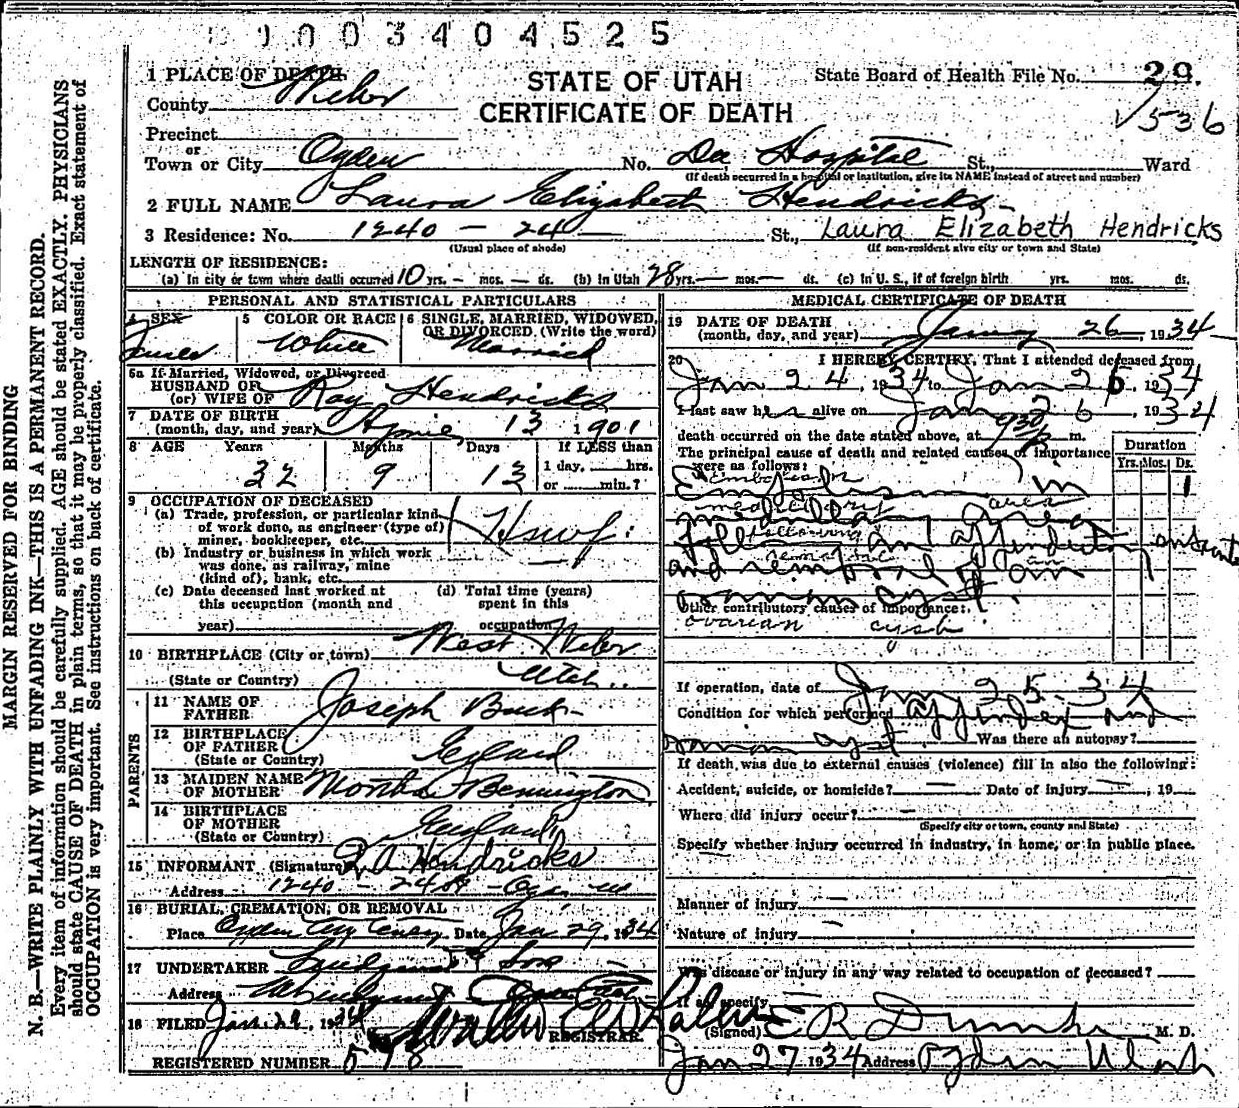 0003404525
1 PLACE OF DEATH
STATE OF UTAH
State Board of Health File No. 29.
County Weber
CERTIFICATE OF DEATH
√536
Precinct
or
Town or City Ogden No. Dee Hospital St. Ward
(If death occurred in a hospital or institution, give its NAME instead of street and number)
2 FULL NAME Laura Elizabeth Hendricks
3 Residence: No. 1240 - 24 St., Laura Elizabeth Hendricks
(Usual place of abode) (If non-resident give city or town and State)
LENGTH OF RESIDENCE:
(a) In city or town where death occurred 10 yrs. - mos. - ds. (b) In Utah 28 yrs. - mos. - ds. (c) In U. S., if of foreign birth yrs. mos. ds.
PERSONAL AND STATISTICAL PARTICULARS
4 SEX
5 COLOR OR RACE
6 SINGLE, MARRIED, WIDOWED, OR DIVORCED. (Write the word)
White
Married
5a If Married, Widowed, or Divorced
HUSBAND OF
(or) WIFE OF Ray Hendricks
7 DATE OF BIRTH
(month, day, and year) April 13 1901
8 AGE Years Months Days If LESS than
1 day, hrs.
32 9 13 or min.?
9 OCCUPATION OF DECEASED
(a) Trade, profession, or particular kind
of work done, as engineer (type of)
miner, bookkeeper, etc. Hswf.
(b) Industry or business in which work
was done, as railway, mine
(kind of), bank, etc.
(c) Date deceased last worked at
this occupation (month and
year)
(d) Total time (years)
spent in this
occupation
10 BIRTHPLACE (City or town) West Weber
(State or Country) Utah
PARENTS
11 NAME OF
FATHER Joseph Buck
12 BIRTHPLACE
OF FATHER England
(State or Country)
13 MAIDEN NAME
OF MOTHER Martha Bennington
14 BIRTHPLACE
OF MOTHER England
(State or Country)
15 INFORMANT (Signature) R A Hendricks
Address 1240 - 24th
16 BURIAL, CREMATION, OR REMOVAL
Place Ogden City Date Jan 29, 1934
17 UNDERTAKER & Sons
Address
18 FILED Jan 29, 1934
REGISTRAR.
REGISTERED NUMBER 578
MEDICAL CERTIFICATE OF DEATH
19 DATE OF DEATH
(month, day, and year) January 26, 1934
20 I HEREBY CERTIFY, That I attended deceased from
Jan 24, 1934 to Jan 26, 1934
I last saw her alive on Jan 26, 1934
death occurred on the date stated above, at 930 p m.
The principal cause of death and related causes of importance
were as follows:
Duration
Yrs. Mos. Ds.
Embolism in 1
medullary area
following an
and removal of an
Other contributory causes of importance:
ovarian cyst
If operation, date of January 25-34
Condition for which performed appendix and
ovarian cyst Was there an autopsy?
If death was due to external causes (violence) fill in also the following:
Accident, suicide, or homicide? — Date of injury —, 19
Where did injury occur? —
(Specify city or town, county and State)
Specify whether injury occurred in industry, in home, or in public place.
Manner of injury —
Nature of injury —
Was disease or injury in any way related to occupation of deceased?
If so, specify
(Signed) E R Dumke M. D.
Jan 27 1934 Address Ogden Utah
MARGIN RESERVED FOR BINDING
N. B.—WRITE PLAINLY WITH UNFADING INK—THIS IS A PERMANENT RECORD.
Every item of information should be carefully supplied. AGE should be stated EXACTLY. PHYSICIANS
should state CAUSE OF DEATH in plain terms, so that it may be properly classified. Exact statement of
OCCUPATION is very important. See instructions on back of certificate.